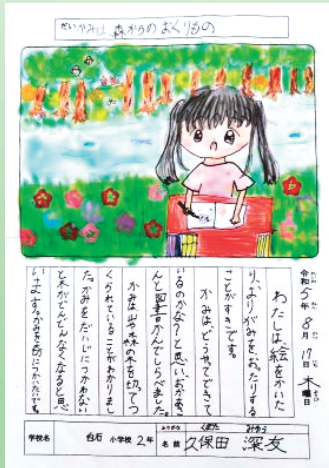 だい かみは、森からのおくりもの
令和5年8月17日木曜日
わたしは、絵をかいた
り、おりがみをおったりする
ことがすきです。
かみは、どうやってできて
いるのかな？と思い、おかあさ
んと図書かんでしらべました。
かみは山や森の木を切ってつ
くられていることがわかりまし
た。かみをだいじにつかわない
と木がぜんぜんなくなると思
います。かみを大切につかいたいです。
学校名 白石 小学校 2年 ふりがな 名前 くぼた みゆう 久保田 深友